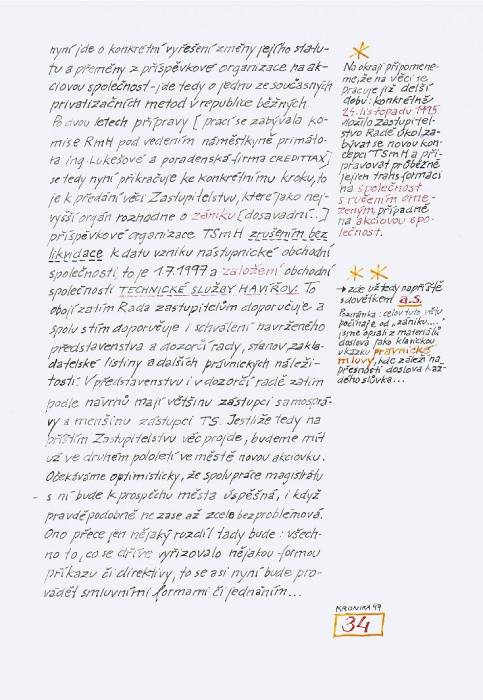 nyní jde o konkrétní vyřešení změny jejího statu-
tu a přeměny z příspěvkové organizace na ak-
ciovou společnost - jde tedy o jednu ze současných
privatizačních metod v republice běžných.
Po dvou letech přípravy [prací se zabývala ko-
mise RmH pod vedením náměstkyně primáto-
ra ing. Lukešové a poradenská firma CREDITTAX]
se tedy nyní přikračuje ke konkrétnímu kroku, to
je k předání věci Zastupitelstvu, které jako nej-
vyšší orgán rozhodne o zániku [dosavadní..]
příspěvkové organizace TSmH zrušením bez
likvidace k datu vzniku nástupnické obchodní
společnosti, to je 1.7.1997 a založení obchodní
společnosti TECHNICKÉ SLUŽBY HAVÍŘOV. To
obojí zatím Rada zastupitelům doporučuje a
spolu s tím doporučuje i schválení navrženého
představenstva a dozorčí rady, stanov, zakla-
datelské listiny a dalších právnických náleži-
tostí. V představenstvu i v dozorčí radě zatím
podle návrhů mají většinu zástupci samosprá-
vy a menšinu zástupci TS. Jestliže tedy na
příštím Zastupitelstvu věc projde, budeme mít
už ve druhém pololetí ve městě novou akciovku.
Očekáváme optimisticky, že spolupráce magistrátu
- s ní bude k prospěchu města úspěšná, i když
pravděpodobně ne zase až zcela bezproblémová.
Ono přece jen nějaký rozdíl tady bude: všech-
no to, co se dříve vyřizovalo nějakou formou
příkazu či direktivy, to se asi nyní bude pro-
vádět smluvními formami či jednáním...
*
Na okraj připomene-
me, že na věci se
pracuje již delší
dobu: konkrétně
24. listopadu 1995
uložilo Zastupitel-
stvo Radě úkol za-
bývat se novou kon-
cepcí TSmH a při-
pravovat průběžně
jejich transformaci
na společnost
s ručením ome-
zeným, případně
na akciovou spo-
lečnost.
* *
→ zde už tedy napříště
s dovětkem a.s.
Poznámka: celou tuto větu
počínaje od „zániku...“
jsme opsali z materiálů
doslova jako klasickou
ukázku právnické
mluvy, kde záleží na
přesnosti doslova kaž-
dého slůvka...
KRONIKA 97
34